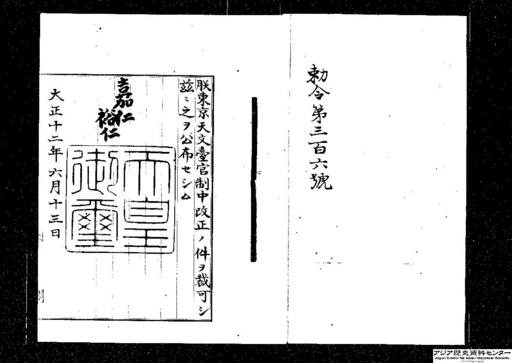 勅令第三百六號
朕東京天文臺官制中改正ノ件ヲ裁可シ
茲ニ之ヲ公布セシム
嘉仁
裕仁
天皇
御璽
大正十二年六月十三日
アジア歴史資料センター
Japan Center for Asian Historical Records